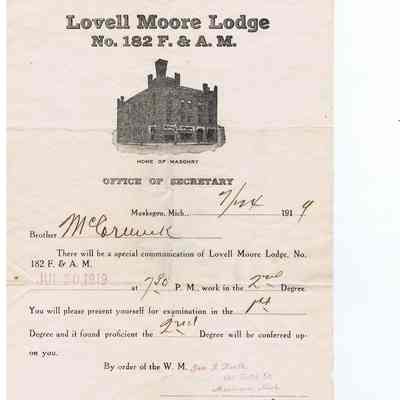 Lovell Moore Lodge
No. 182 F. & A. M.
HOME OF MASONRY
OFFICE OF SECRETARY
Muskegon, Mich., 7/24 1919
Brother McCormick
There will be a special communication of Lovell Moore Lodge, No.
182 F. & A. M.
JUL 20 1919 at 7 30 P. M., work in the 2nd Degree
You will please present yourself for examination in the 1st
Degree and it found proficient the 2nd Degree will be conferred up-
on you.
By order of the W. M.